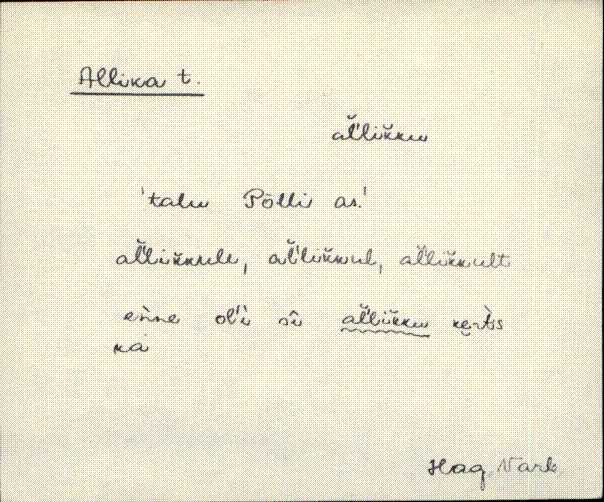 Allika t.
al̆'lik̆ku
'talu Põlli as.'
al̆'lik̆kulle, al̆'lik̆kul, al̆'lik̆kult
en̆ne ol'i si al̆'lik̆ku kèrts
ka
Hag